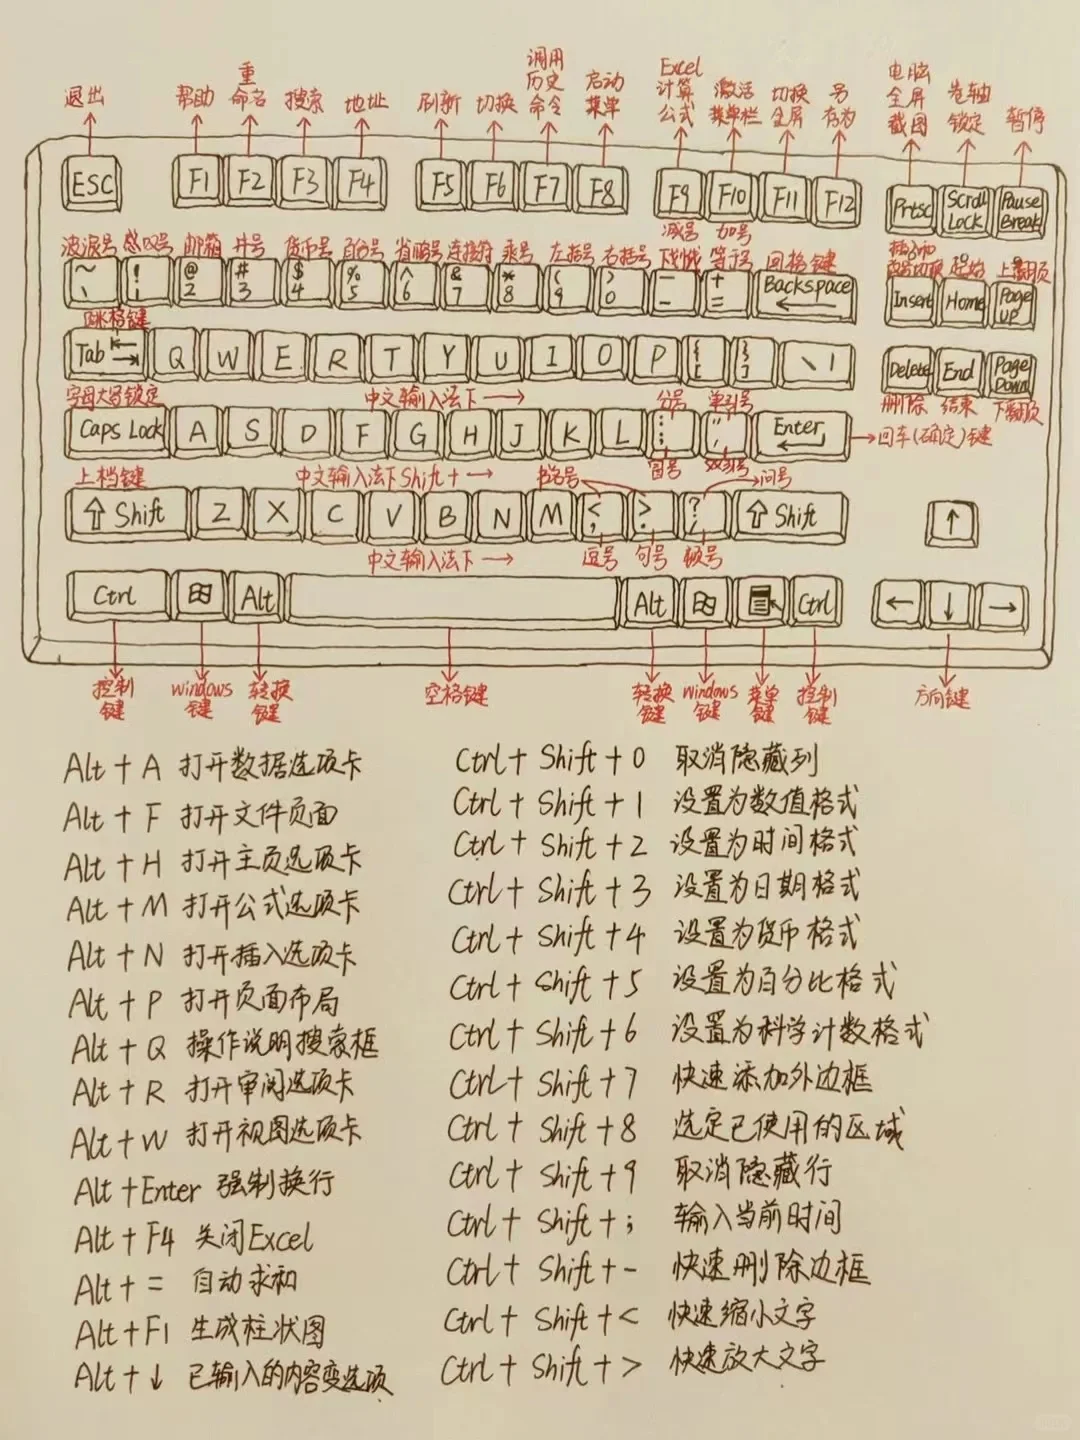 退出 帮助 重命名 搜索 地址 刷新 切换 调用历史命令 启动菜单 Excel计算公式 激活菜单栏 切换全屏 另存为 电脑全屏截图 卷轴锁定 暂停
ESC F1 F2 F3 F4 F5 F6 F7 F8 F9 F10 F11 F12 Prtsc Scroll Lock Pause Break
波浪号 感叹号 邮箱 井号 货币号 百分号 省略号 连接符 乘号 左括号 右括号 减号 下划线 加号 等于号 回格键 起始 上翻页
~ 、 ! 1 @ 2 # 3 $ 4 % 5 ^ 6 & 7 * 8 ( 9 ) 0 — - + = Backspace Insert Home Page up
跳格键
Tab Q W E R T Y U I O P { [ } ] \ | Delete End Page Down
字母大写锁定 中文输入法下 分号 单引号 删除 结束 下翻页
Caps Lock A S D F G H J K L : ; " , Enter 回车(确定)键
上档键 中文输入法下Shift+ 书名号 冒号 双引号 问号
Shift Z X C V B N M < , > . ? / Shift ↑
中文输入法下 逗号 句号 顿号
Ctrl Alt Alt Ctrl ← ↓ →
控制键 windows键 转换键 空格键 转换键 windows键 菜单键 控制键 方向键
Alt + A 打开数据选项卡
Alt + F 打开文件页面
Alt + H 打开主页选项卡
Alt + M 打开公式选项卡
Alt + N 打开插入选项卡
Alt + P 打开页面布局
Alt + Q 操作说明搜索框
Alt + R 打开审阅选项卡
Alt + W 打开视图选项卡
Alt +Enter 强制换行
Alt + F4 关闭Excel
Alt + = 自动求和
Alt + F1 生成柱状图
Alt + ↓ 已输入的内容变选项
Ctrl + Shift + 0 取消隐藏列
Ctrl + Shift + 1 设置为数值格式
Ctrl + Shift + 2 设置为时间格式
Ctrl + Shift + 3 设置为日期格式
Ctrl + Shift + 4 设置为货币格式
Ctrl + Shift + 5 设置为百分比格式
Ctrl + Shift + 6 设置为科学计数格式
Ctrl + Shift + 7 快速添加外边框
Ctrl + Shift + 8 选定已使用的区域
Ctrl + Shift + 9 取消隐藏行
Ctrl + Shift + ; 输入当前时间
Ctrl + Shift + - 快速删除边框
Ctrl + Shift + < 快速缩小文字
Ctrl + Shift + > 快速放大文字